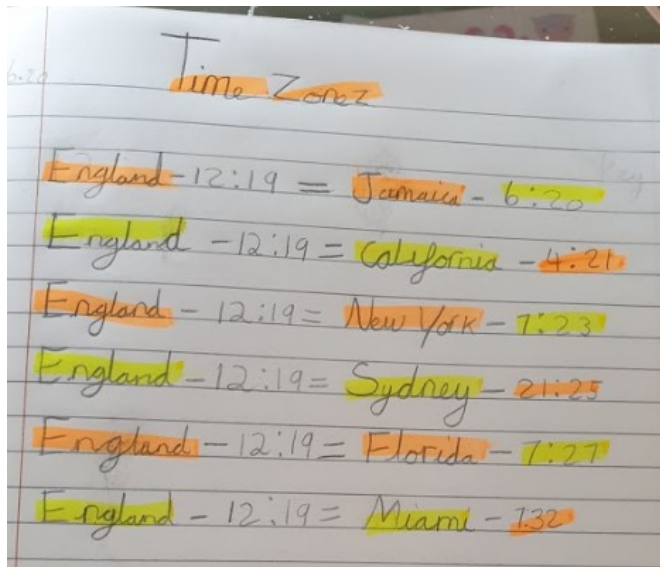 Time Zonez
England - 12:19 = Jamaica - 6:20
England - 12:19 = California - 4:21
England - 12:19 = New York - 7:23
England - 12:19 = Sydney - 21:25
England - 12:19 = Florida - 7:27
England - 12:19 = Miami - 7:32